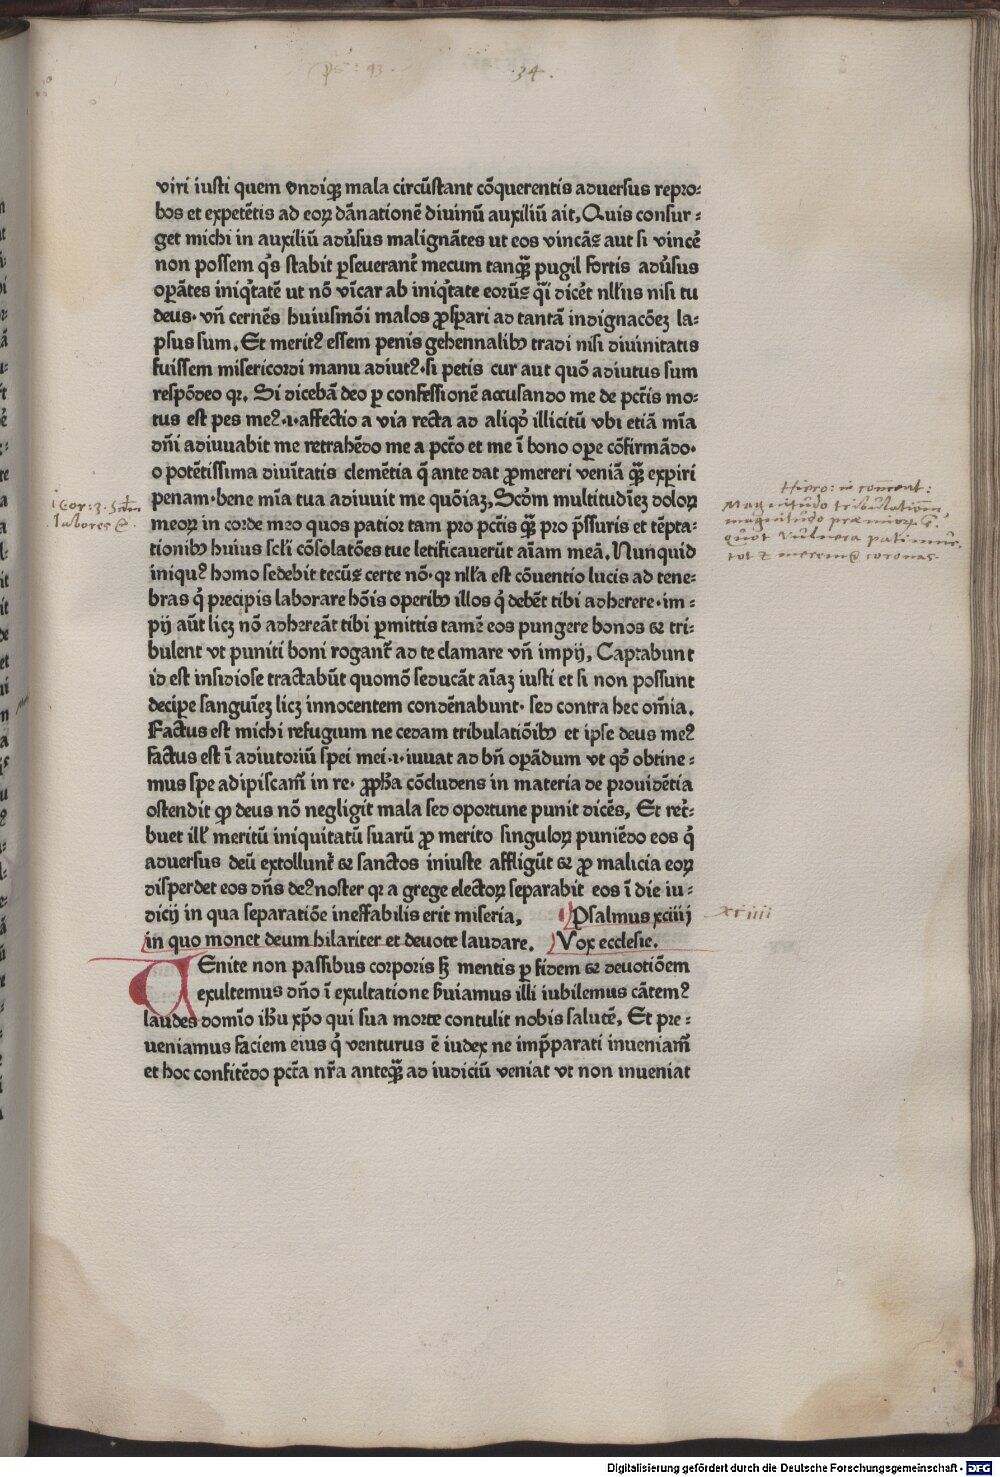 ps: 93.
34.
viri iusti quem vndiqꝫ mala circūstant cōquerentis aduersus repro⸗
bos et expetētis ad eoꝝ dānationē diuinū auxiliū ait, Quis consur⸗
get michi in auxiliū adūsus malignātes ut eos vincā? aut si vincē
non possem qͥs stabit ꝑseuerant᷒ mecum tanqꝫ pugil fortis adūsus
oꝑātes iniqͥtatē ut nō vīcar ab iniqͥtate eorū? qͥ dicet nllus nisi tu
deus· vn̄ cernēs huiusmōi malos ꝓsꝑari ad tantā indignacōeꝫ la⸗
psus sum, Et meritꝰ essem penis gehennalibꝫ tradi nisi diuinitatis
fuissem misericordi manu adiutꝰ· si petis cur aut quō adiutus sum
respōdeo qr, Si dicebā deo ꝑ confessionē accusando me de pctīs mo⸗
tus est pes meꝰ ·i· affectio a via recta ad aliqd̓ illicitū vbi etiā mīa
dn̄i adiuuabit me retrahēdo me a pctō et me ī bono oꝑe cōfirmādo·
o potētissima diuītatis clemētia q̄ ante dat ꝓmereri veniā qꝫ exꝑiri
penam· bene mīa tua adiuuit me quōiaꝫ, Scōm multitudīeꝫ doloꝝ
meoꝝ in corde meo quos patior tam pro pctīs qꝫ pro p̄ssuris et tēpta⸗
tionibꝫ huius scli cōsolatōes tue letificauerūt aīam meā, Nunquid
iniquꝰ homo sedebit tecū? certe nō· qr nlla est cōuentio lucis ad tene⸗
bras qͥ precipis laborare hōis operibꝫ illos qͥ debēt tibi adherere· im⸗
pij aūt licꝫ nō adhereāt tibi ꝑmittis tamē eos pungere bonos et tri⸗
bulent vt puniti boni rogant᷒ ad te clamare vn̄ impij, Captabunt
id est insidiose tractabūt quomō seducāt aīaꝫ iusti et si non possunt
deciꝑe sanguīeꝫ licꝫ innocentem condēnabunt· sed contra hec om̄ia,
Factus est michi refugium ne cedam tribulatiōibꝫ et ipse deus meꝰ
factus est ī adiutoriū spei mei ·i· iuuat ad bn̄ oꝑādum vt qd̓ obtine⸗
mus spe adipiscam᷒ in re· ꝓpħa cōcludens in materia de prouidētia
ostendit qꝫ deus nō negligit mala sed oportune punit dicēs, Et ret᷒⸗
buet ill᷒ meritū iniquitatū suarū ꝓ merito singuloꝝ puniēdo eos qͥ
aduersus deū extollunt᷒ et sanctos iniuste affligūt et ꝓ malicia eoꝝ
disperdet eos dn̄s deꝰ noster qr a grege electoꝝ separabit eos ī die iu⸗
dicij in qua separatiōe ineffabilis erit miseria, Psalmus xciiij
in quo monet deum hilariter et deuote laudare, Vox ecclesie.
VEnite non passibus corporis sꝫ mentis ꝑ fidem et deuotiōem
exultemus dn̄o ī exultatione ħuiamus illi iubilemus cātemꝰ
laudes domīo iħu xp̄o qui sua morte contulit nobis salutē, Et pre⸗
ueniamus faciem eius qͥ venturus ē iudex ne imp̄parati inueniam᷒
et hoc confitēdo pctā nr̄a anteqꝫ ad iudiciū veniat vt non inueniat
1 Cor: 3.
labores
Hiero: in
Magnitudo tribulationum,
magnitudo præmiorꝫ
quot vulnera patimur,
tot coronas.
xciiii
Digitalisierung gefördert durch die Deutsche Forschungsgemeinschaft - DFG